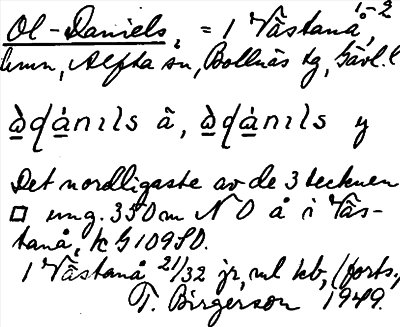 Ol-Daniels, = 1 Västanå 1-2,
hmn, Alfta sn, Bollnäs tg, Gävl. l
å, y
Det nordligaste av de 3 tecknen
□ ung. 350 m NO å i Väs-
tanå, k G109SO.
1 Västanå 21/32 jr, ml kb, (forts.)
T. Birgerson 1949.